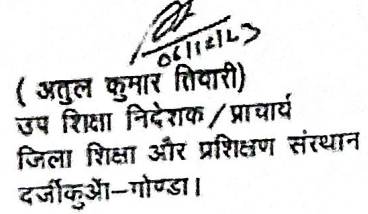 06/12/23
( अतुल कुमार तिवारी)
उप शिक्षा निदेशक / प्राचार्य
जिला शिक्षा और प्रशिक्षण संस्थान
दर्जीकुऑ–गोण्डा।